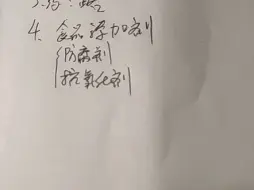 4. 食品添加剂
防腐剂
抗氧化剂